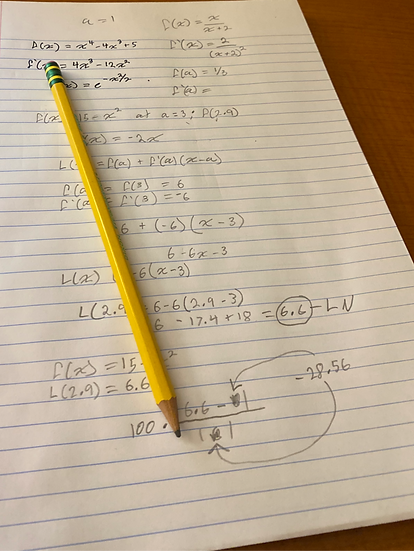 a = 1
f(x) = x/(x+2)
f'(x) = 2/(x+2)²
f(a) = 1/3
f'(a) =
f(x) = x⁴ - 4x³ + 5
f'(x) = 4x³ - 12x²
(x) = e^(-x²/2)
f(x) 15 - x² at a = 3; f(2.9)
(x) = -2x
L( = f(a) + f'(a)(x-a)
f(a) = f(3) = 6
f'(a) = f'(3) = -6
6 + (-6)(x-3)
6 - 6x - 3
L(x) -6(x-3)
L(2.9 6-6(2.9-3)
6 - 17.4 + 18 = 6.6 - LN
f(x) = 15- ²
L(2.9) = 6.6
-28.56
100 · |6.6 - |
| |